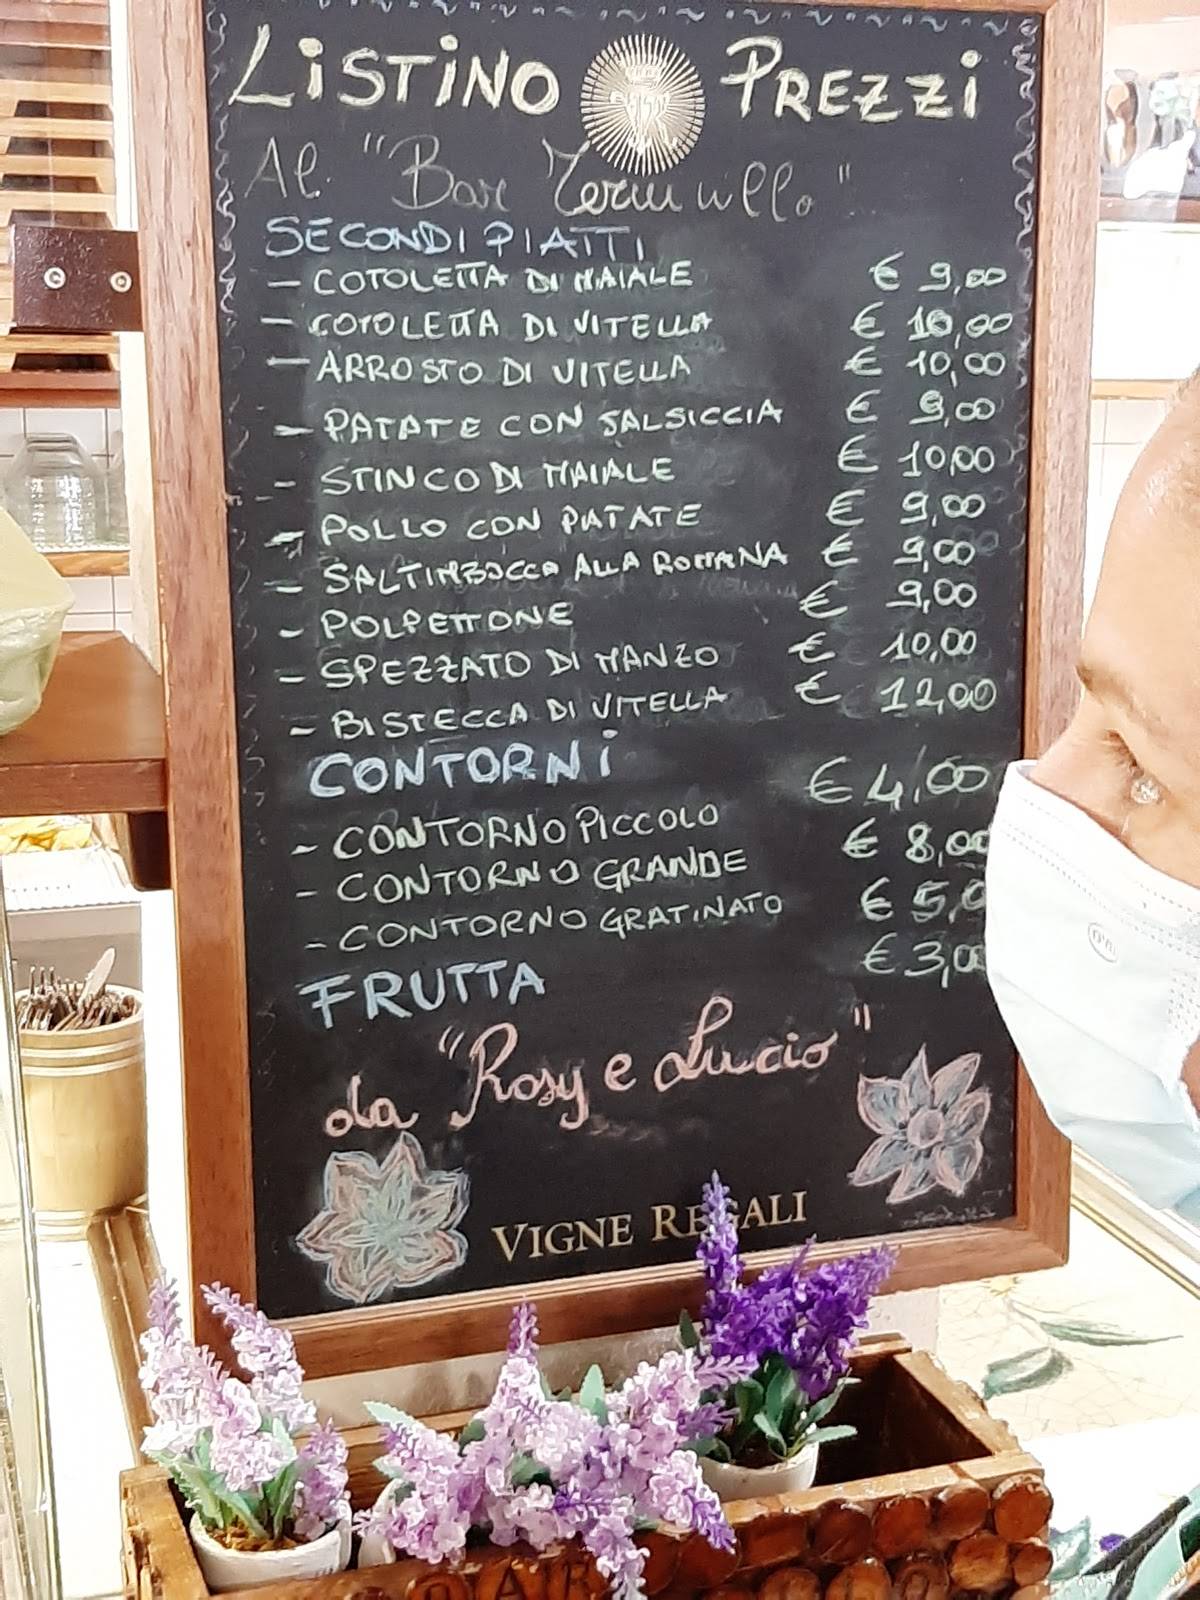 LISTINO PREZZI
Al "Bar Terminillo"
SECONDI PIATTI
- COTOLETTA DI MAIALE € 9,00
- COTOLETTA DI VITELLA € 10,00
- ARROSTO DI VITELLA € 10,00
- PATATE CON SALSICCIA € 9,00
- STINCO DI MAIALE € 10,00
- POLLO CON PATATE € 9,00
- SALTIMBOCCA ALLA ROMANA € 9,00
- POLPETTONE € 9,00
- SPEZZATO DI MANZO € 10,00
- BISTECCA DI VITELLA € 12,00
CONTORNI
- CONTORNO PICCOLO € 4,00
- CONTORNO GRANDE € 8,00
- CONTORNO GRATINATO € 5,0
FRUTTA € 3,00
da "Rosy e Lucio"
VIGNE REGALI